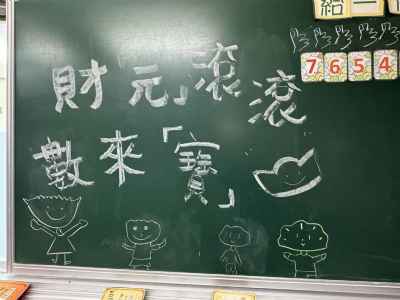 給一
7 6 5 4
財「元」滾滾
數來「寶」